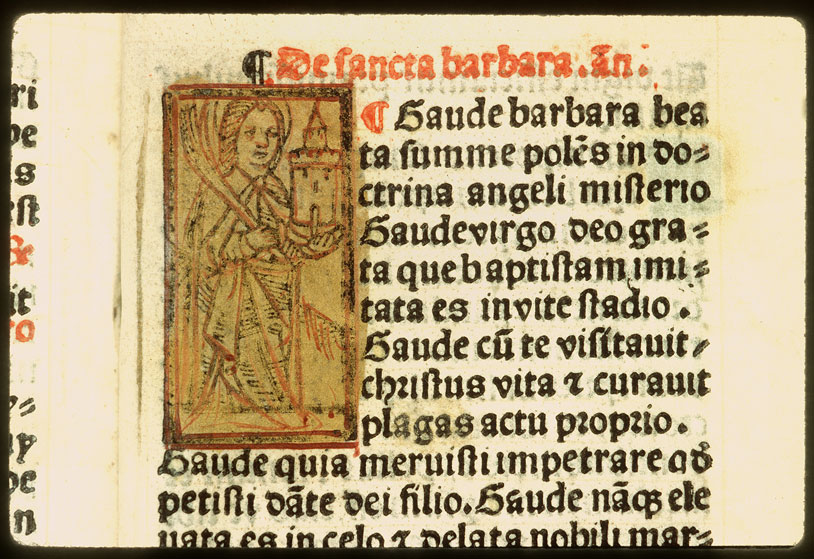 ¶ De sancta barbara. añ.
¶ Gaude barbara bea
ta summe polēs in do⸗
ctrina angeli misterio
Gaude virgo deo gra⸗
ta que baptistam imi⸗
tata es in vite stadio.
Gaude cū te visitauit
christus vita ⁊ curauit
plagas actu proprio.
Gaude quia meruisti impetrare qđ
petisti dāte dei filio. Gaude nāqꝫ ele
uata es in celo ⁊ delata nobili mar⸗